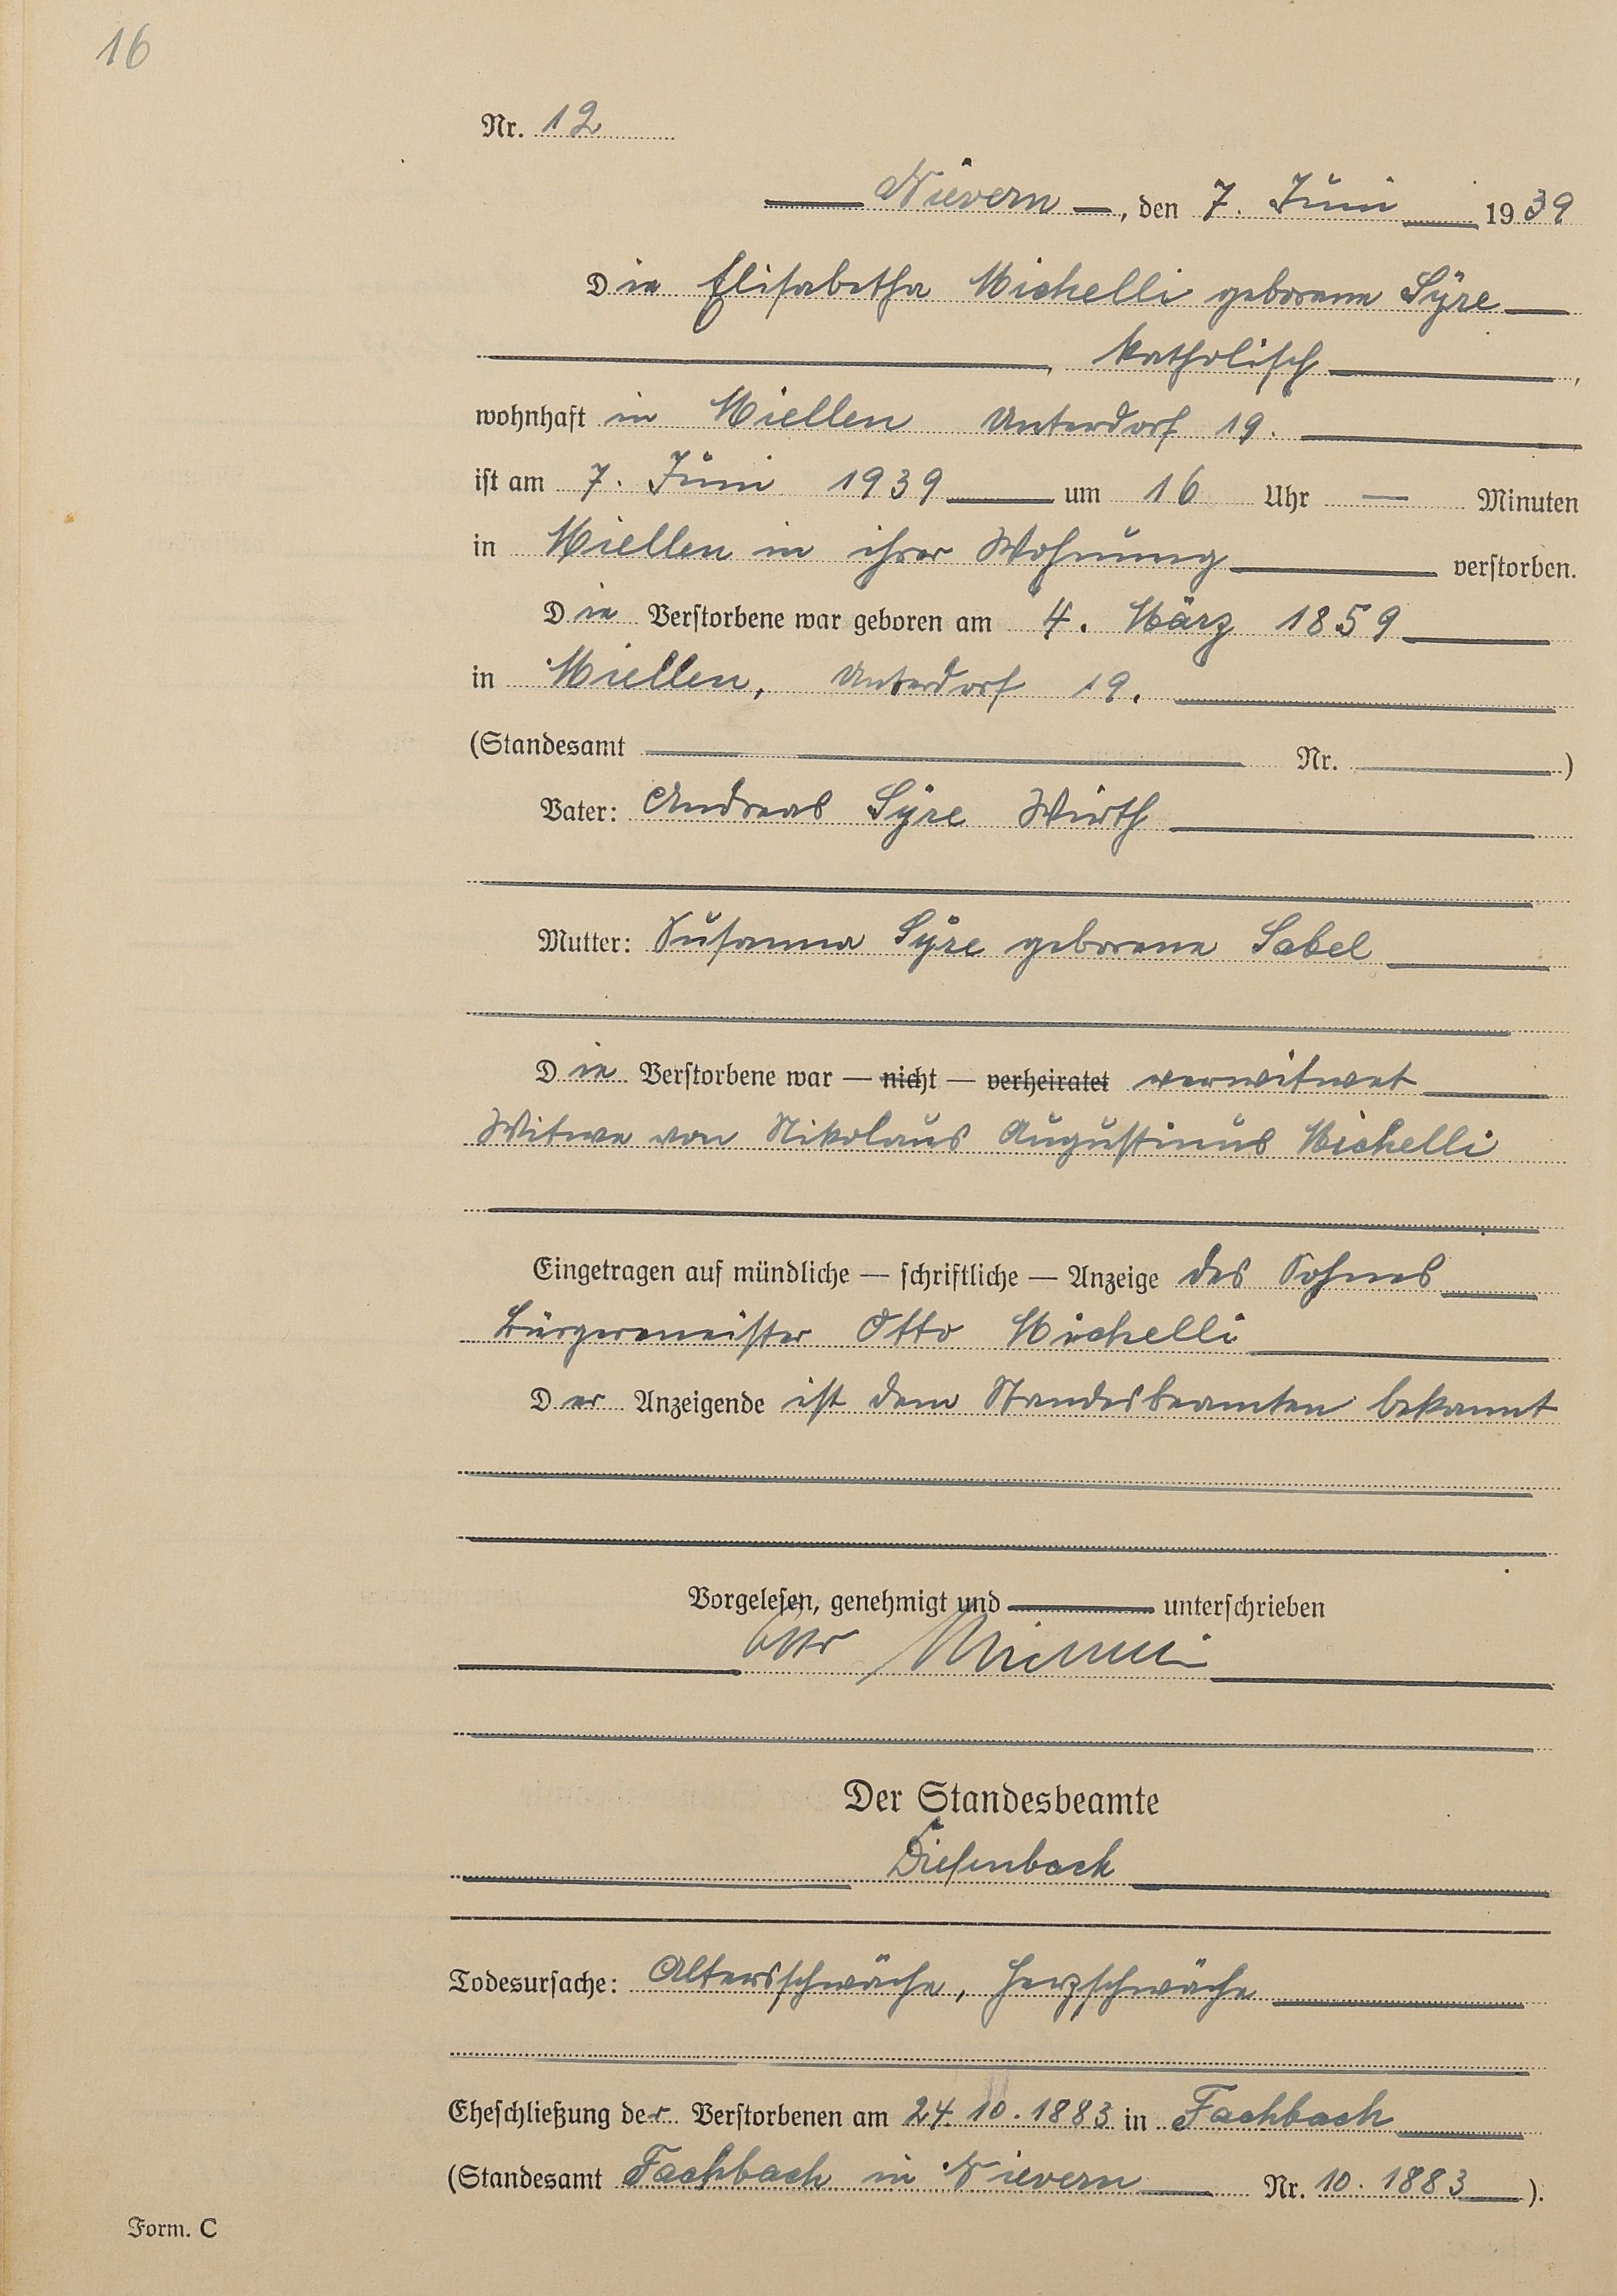 16
Nr. 12
Nievern, den 7. Juni 1939
Die Elisabetha Michelli geborene Syre
, katholisch,
wohnhaft in Miellen Unterdorf 19.
ist am 7. Juni 1939 um 16 Uhr — Minuten
in Miellen in ihrer Wohnung verstorben.
Die Verstorbene war geboren am 4. März 1859
in Miellen, Unterdorf 19.
(Standesamt Nr. )
Vater: Andreas Syre Wirth
Mutter: Susanna Syre geborene Sabel
Die Verstorbene war — nicht — verheiratet verwitwet
Witwe von Nikolaus Augustinus Michelli
Eingetragen auf mündliche — schriftliche — Anzeige des Sohnes
Bürgermeister Otto Michelli
Der Anzeigende ist dem Standesbeamten bekannt
Vorgelesen, genehmigt und unterschrieben
Otto Michelli
Der Standesbeamte
Diefenbach
Todesursache: Altersschwäche, Herzschwäche
Eheschließung der Verstorbenen am 24.10.1883 in Fachbach
(Standesamt Fachbach in Nievern Nr. 10. 1883).
Form. C